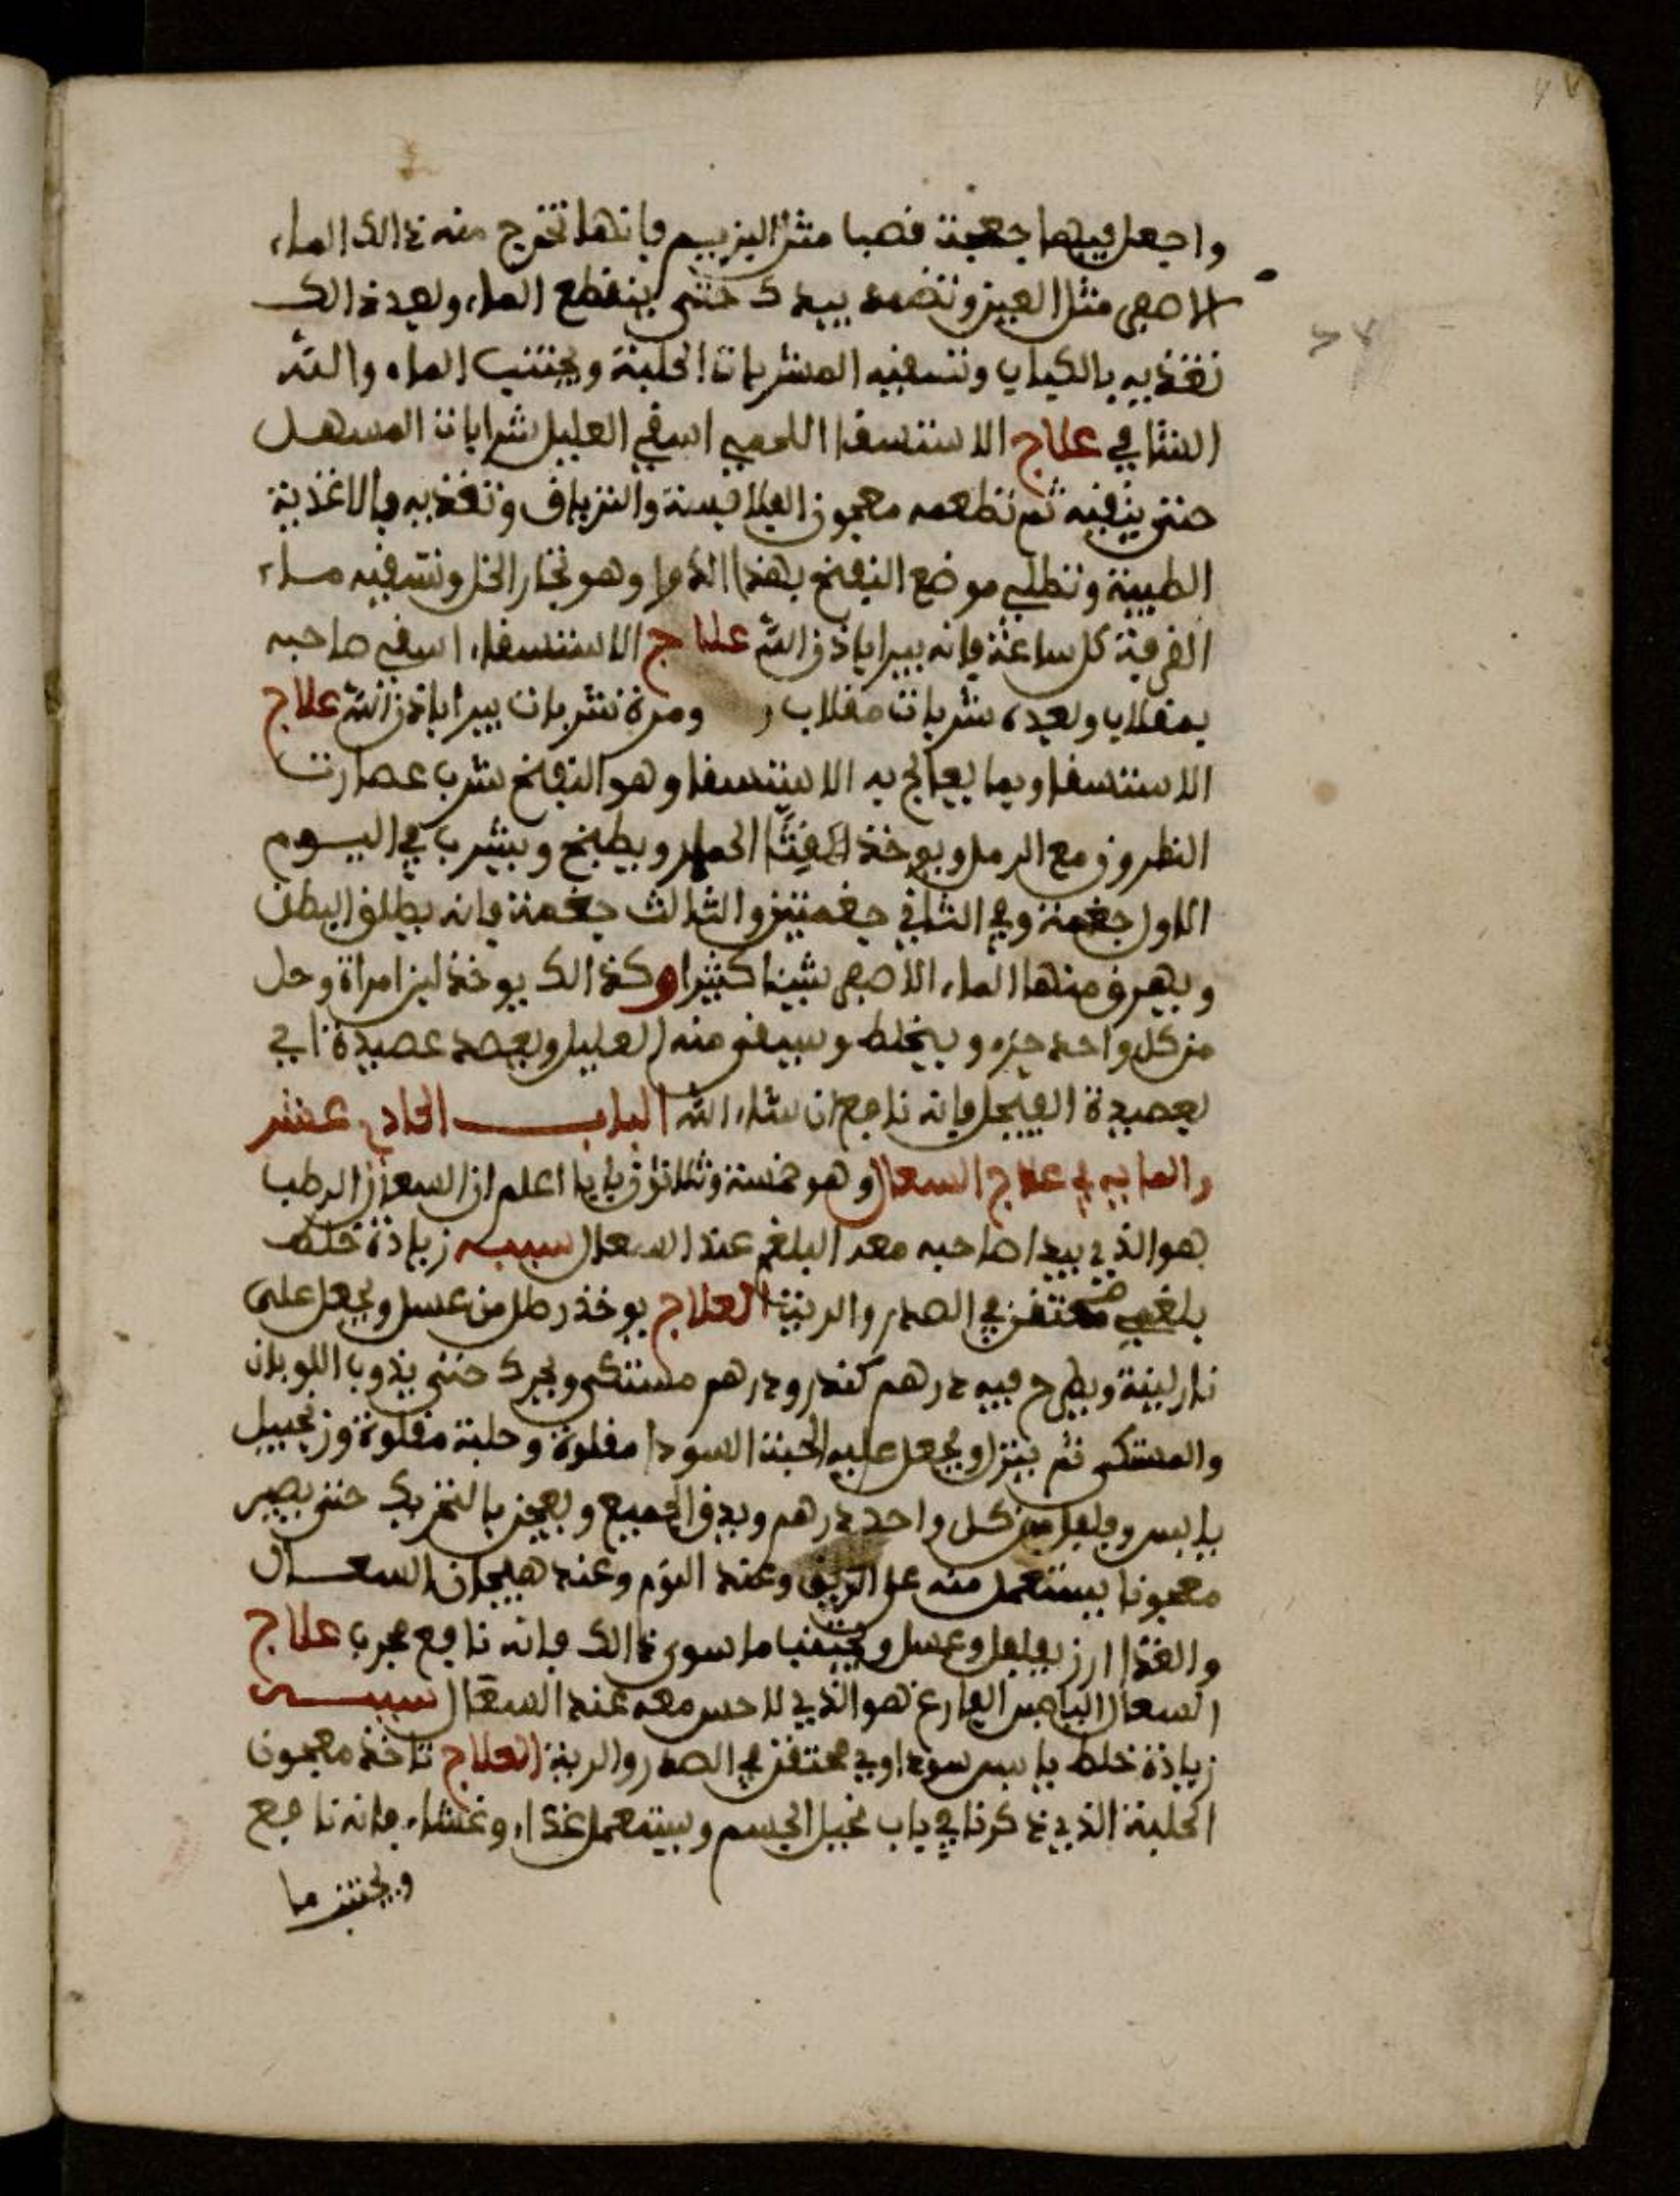 واجعل فيهما جعبة قصبا مثل البزيم فإنها تخرج منه ذالك الماء
الاصفر مثل العين وتضمه بيدك حتى ينقطع الماء وبعد ذالك
تغذيه بالكباب وتسقيه المشربات الحلبة ويجتنب الماء والله
الشافي علاج الاستسقا اللحمي اسقي العليل شرابات المسهل
حتى ينقيه ثم تطعمه معجون الفلاقسة والترياق وتغذيه بالاغذية
الطيبة وتطلي موضع النفخ بهذا الدوا وهو نخار الخل وتسقيه ماء
القرفة كل ساعة فإنه يبرا بإذن الله علاج الاستسقاء اسقي صاحبه
بمقلاب وبعده شربات مقلاب ومرة شربات يبرا بإذن الله علاج
الاستسقا وبما يعالج به الاستسقا وهو النفخ شرب عصارت
النطرون مع الرمل ويوخذ القثا الحمار ويطبخ ويشرب في اليوم
الاول جغمة وفي الثاني جغمتين والثالث جغمة فإنه يطلق البطن
ويهرق منها الماء الاصفر شيئا كثيرا وكذالك يوخذ لبن امراة وخل
من كل واحد جزء ويخلط ويسقى منه العليل ويعصد عصيدة اي
بعصيدة الفيجل فإنه نافع ان شاء الله البــاب الحادي عشر
والمايه في علاج السعال وهو خمسة وثلاثون بابا اعلم ان السعال الرطب
هو الذي يبدا صاحبه معه البلغم عند السعال سببه زيادة خلط
بلغمي محتقن في الصدر والرية العلاج يوخذ رطل من عسل ويجعل على
نار لينة ويطرح فيه درهم كندر ودرهم مستكى ويحرك حتى يذوب اللوبان
والمستكى ثم ينزل ويجعل عليه الحبة السودا مقلوة وحلبة مقلوة وزنجبيل
يابس وفلفل من كل واحد درهم ويدق الجميع ويعجن بالتحريك حتى يصير
معجونا يستعمل منه على الريق وعند النوم وعند هيجان السعال
والغذا ارز بفلفل وعسل ويجتنب ما سوى ذالك فإنه نافع مجرب علاج
السعال اليابس الفارغ هو الذي لا حس معه عند السعال سببــه
زيادة خلط يابس سوداوي محتقن في الصدر والرية العلاج تاخذ معجون
الحلبة الذي ذكرنا في باب نحيل الجسم ويستعمل غداء وعشاء فإنه نافع
ويجتنب ما